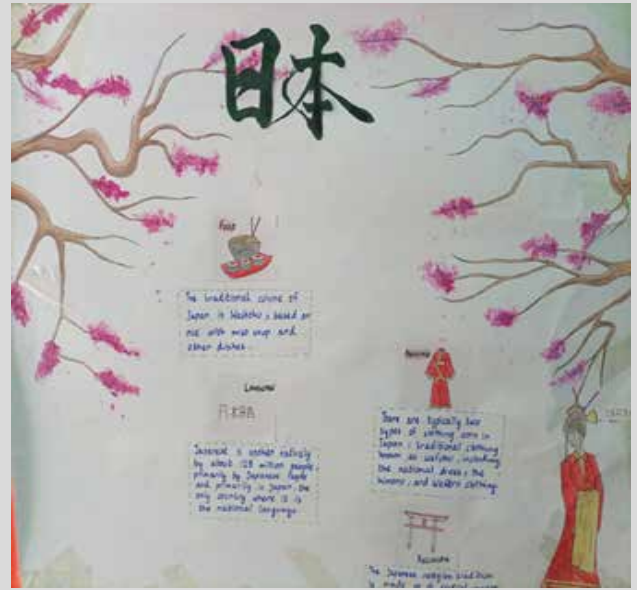 日本
Food
The traditional cuisine of
Japan is Washoku; based on
rice with miso soup and
other dishes.
LANGUAGE
Japanese is spoken natively
by about 128 million people
primarily by Japanese People
and primarily in Japan, the
only country where it is
the national language.
There are typically two
types of clothing worn in
Japan: traditional clothing
known as wafuku, including
the national dress, the
kimono, and Western clothing.
RELIGION
The Japanese religion tradition
is made up of